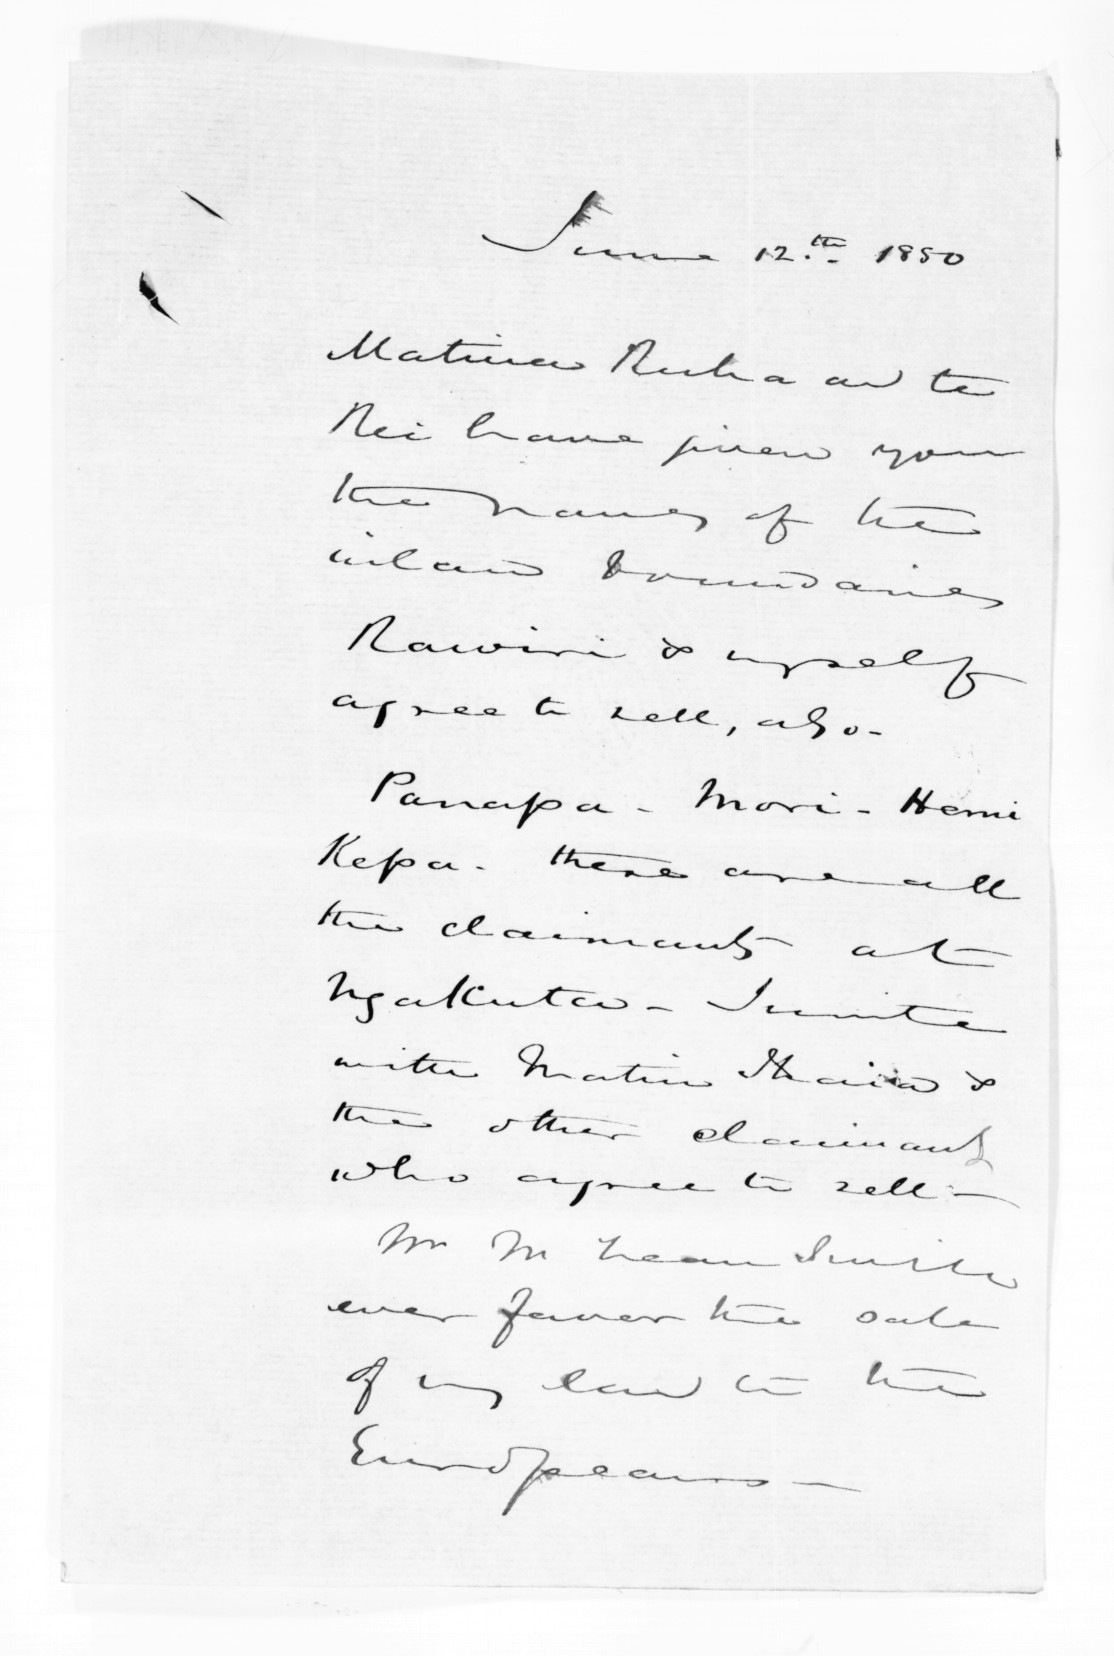 June 12th. 1850
Matiua Ruka and te
Rei have given you
the names of the
inland boundaries
Rawiri & myself
agree to sell, also -
Panapa - Mori - Hemi
Kepa - these are all
the claimants at
Ngakuta - I unite
with Matiu Ihaia &
the other claimants
who agree to sell -
Mr McLean I will
ever favor the sale
of my land to the
Europeans -